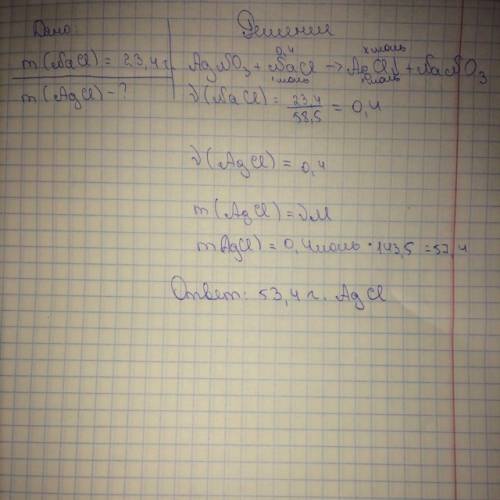 Дано:
Решение
m(NaCl) = 23,4 г.
0,4
x моль
AgNO3 + NaCl → AgCl↓ + NaNO3
1 моль
1 моль
m(AgCl) - ?
ν(NaCl) = 23,4 / 58,5 = 0,4
ν(AgCl) = 0,4
m(AgCl) = νM
m(AgCl) = 0,4 моль · 143,5 = 57,4
Ответ: 53,4 г. AgCl